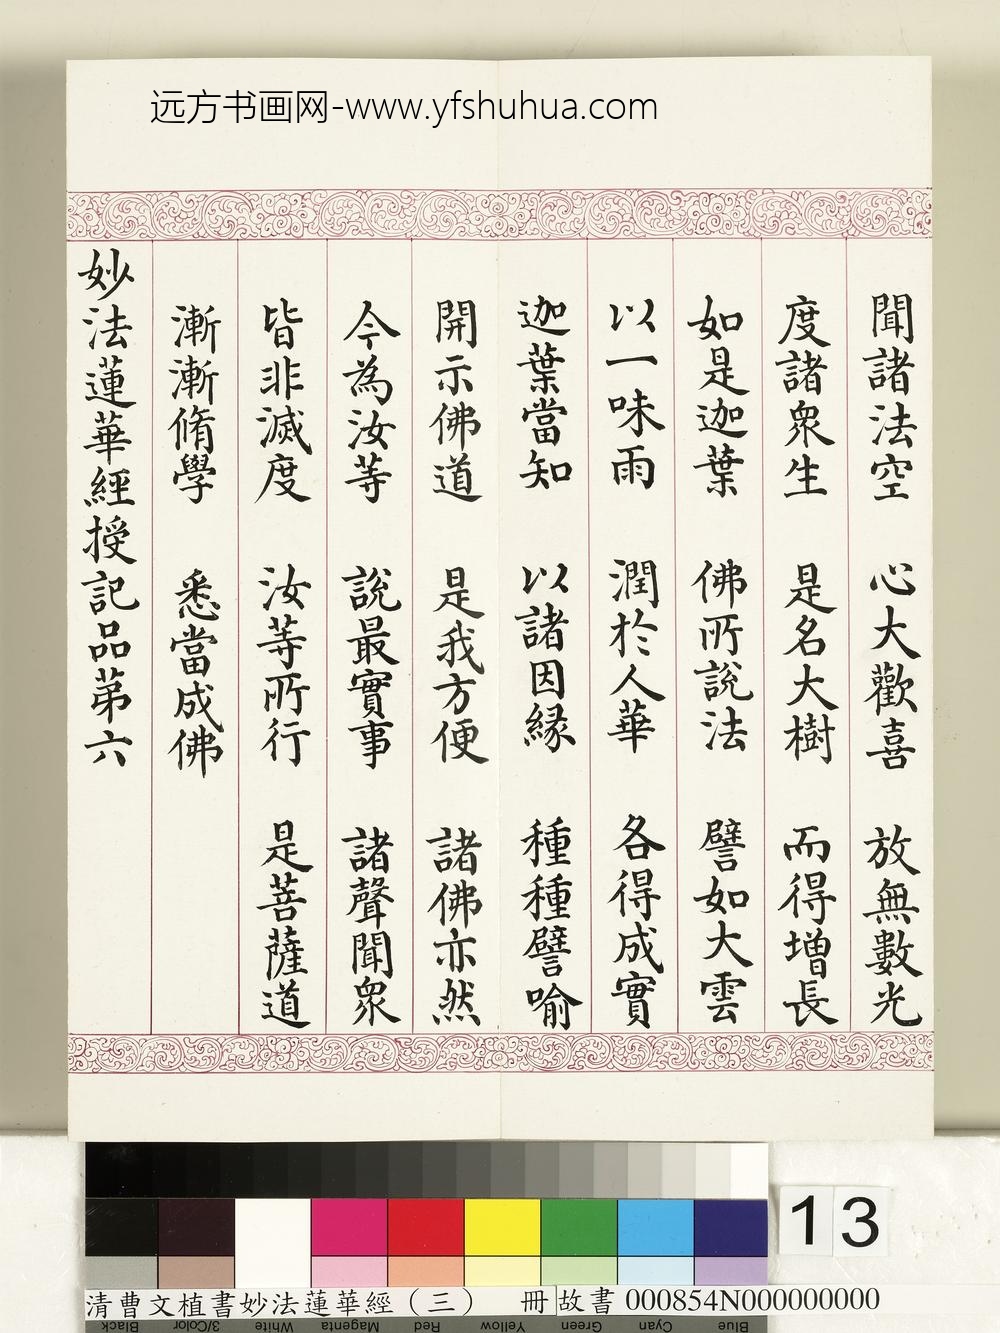 远方书画网-www.yfshuhua.com
聞諸法空 心大歡喜 放無數光
度諸衆生 是名大樹 而得增長
如是迦葉 佛所說法 譬如大雲
以一味雨 潤於人華 各得成實
迦葉當知 以諸因緣 種種譬喻
開示佛道 是我方便 諸佛亦然
今為汝等 說最實事 諸聲聞衆
皆非滅度 汝等所行 是菩薩道
漸漸脩學 悉當成佛
妙法蓮華經授記品第六
13
清曹文植書妙法蓮華經（三） 冊 故書 000854N000000000
Black 3/Color White Magenta Red Yellow Green Cyan Blue